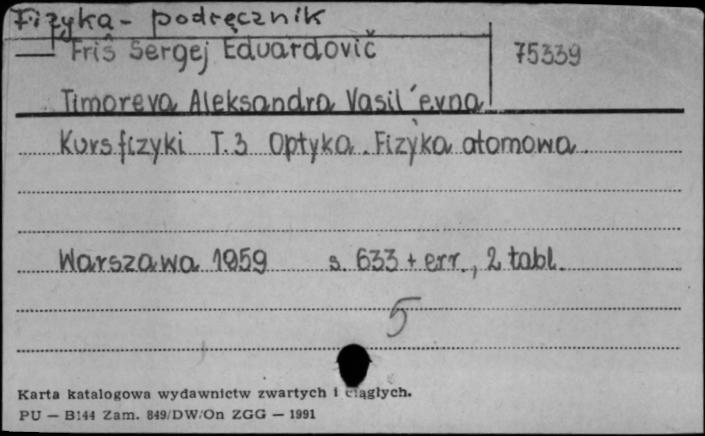 Fizyka - podręcznik
Friŝ Sergej Èduardovič 75339
Timoreva Aleksandra Vasil'evna
Kurs fizyki T.3 Optyka. Fizyka atomowa
Warszawa 1959 s. 633 + err., 2 tabl.
5
Karta katalogowa wydawnictw zwartych i ciągłych.
PU — B144 Zam. 849/DW/On ZGG — 1991